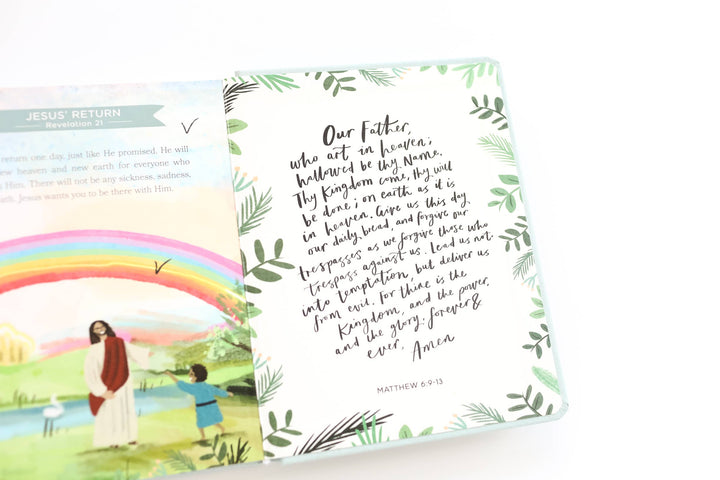 JESUS' RETURN
Revelation 21
return one day, just like He promised. He will
new heaven and new earth for everyone who
Him. There will not be any sickness, sadness,
Jesus wants you to be there with Him.
Our Father,
who art in heaven;
hallowed be thy Name.
Thy Kingdom come, thy will
be done; on earth as it is
in heaven. Give us this day
our daily bread, and forgive our
trespasses as we forgive those who
trespass against us. Lead us not
into temptation, but deliver us
from evil. For thine is the
Kingdom, and the power,
and the glory: forever &
ever, Amen
MATTHEW 6:9-13